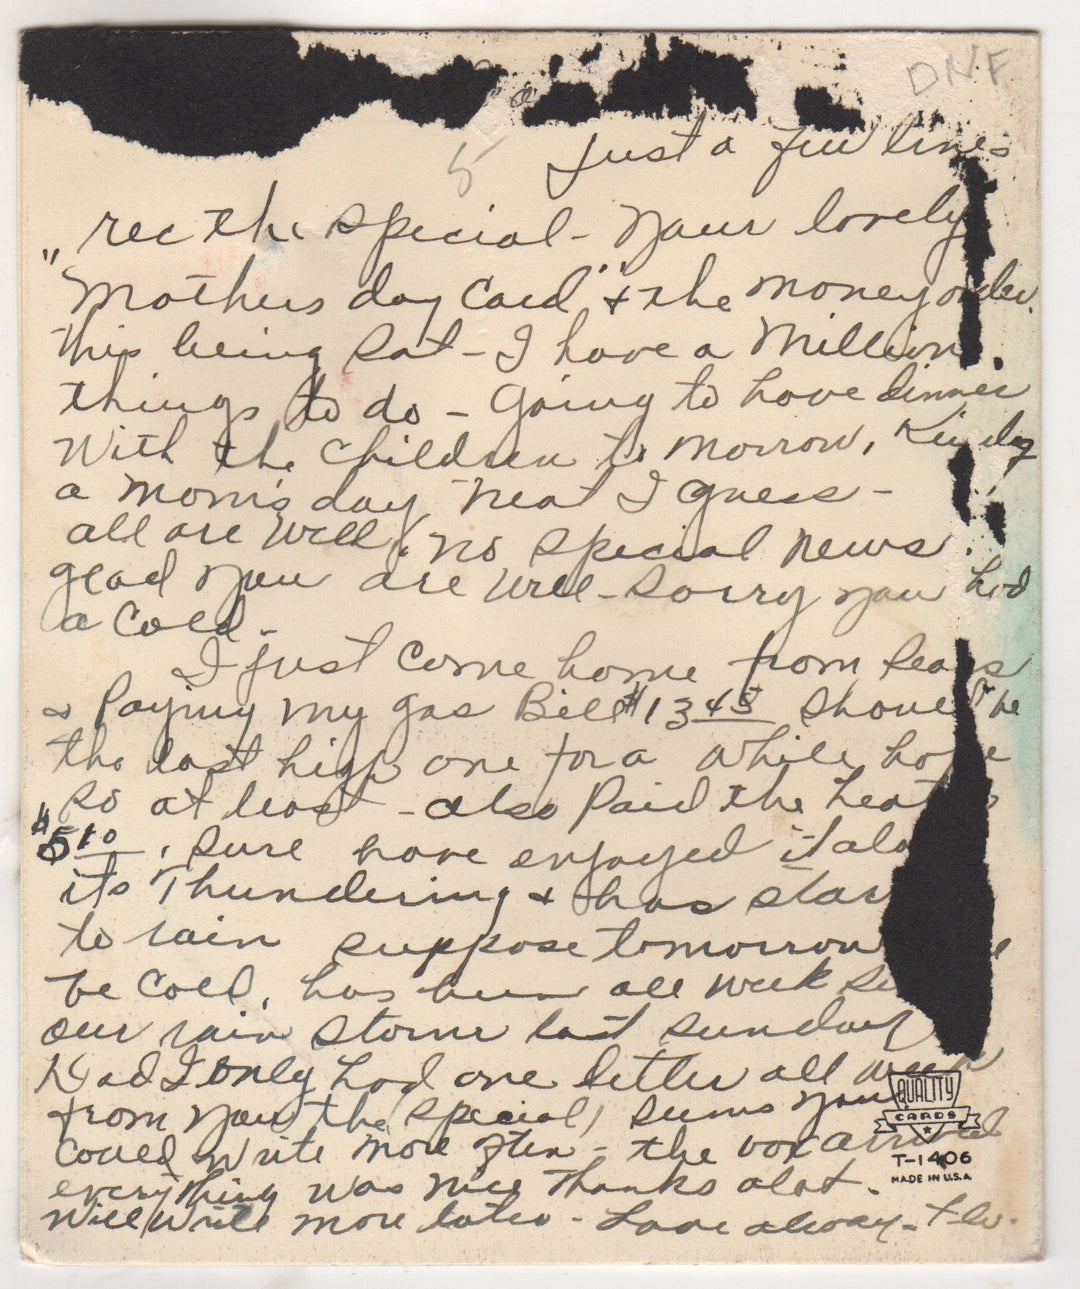 DNF
5
Just a few lines
rec the special - your lovely
"Mothers day Card" + the money order.
this being Sat - I have a Million
things to do - going to have dinner
With the Children to morrow,
a Mom's day treat I guess -
all are well, no special news.
glad you are well - sorry you had
a cold.
I just come home from Sears
& Paying my gas Bill $13 45 should be
the last high one for a while hope
so at least - also Paid the
$5 10, sure have enjoyed it
its Thundering + has
to rain suppose tomorrow
be cold, has been all week
our rain storm last Sunday
Dad I only had one letter all week
from you (the special) seems you
could write more often - the box arrived
everything was nice Thanks alot.
Will write more later - Love always -
QUALITY
CARDS
T-1406
MADE IN U.S.A.